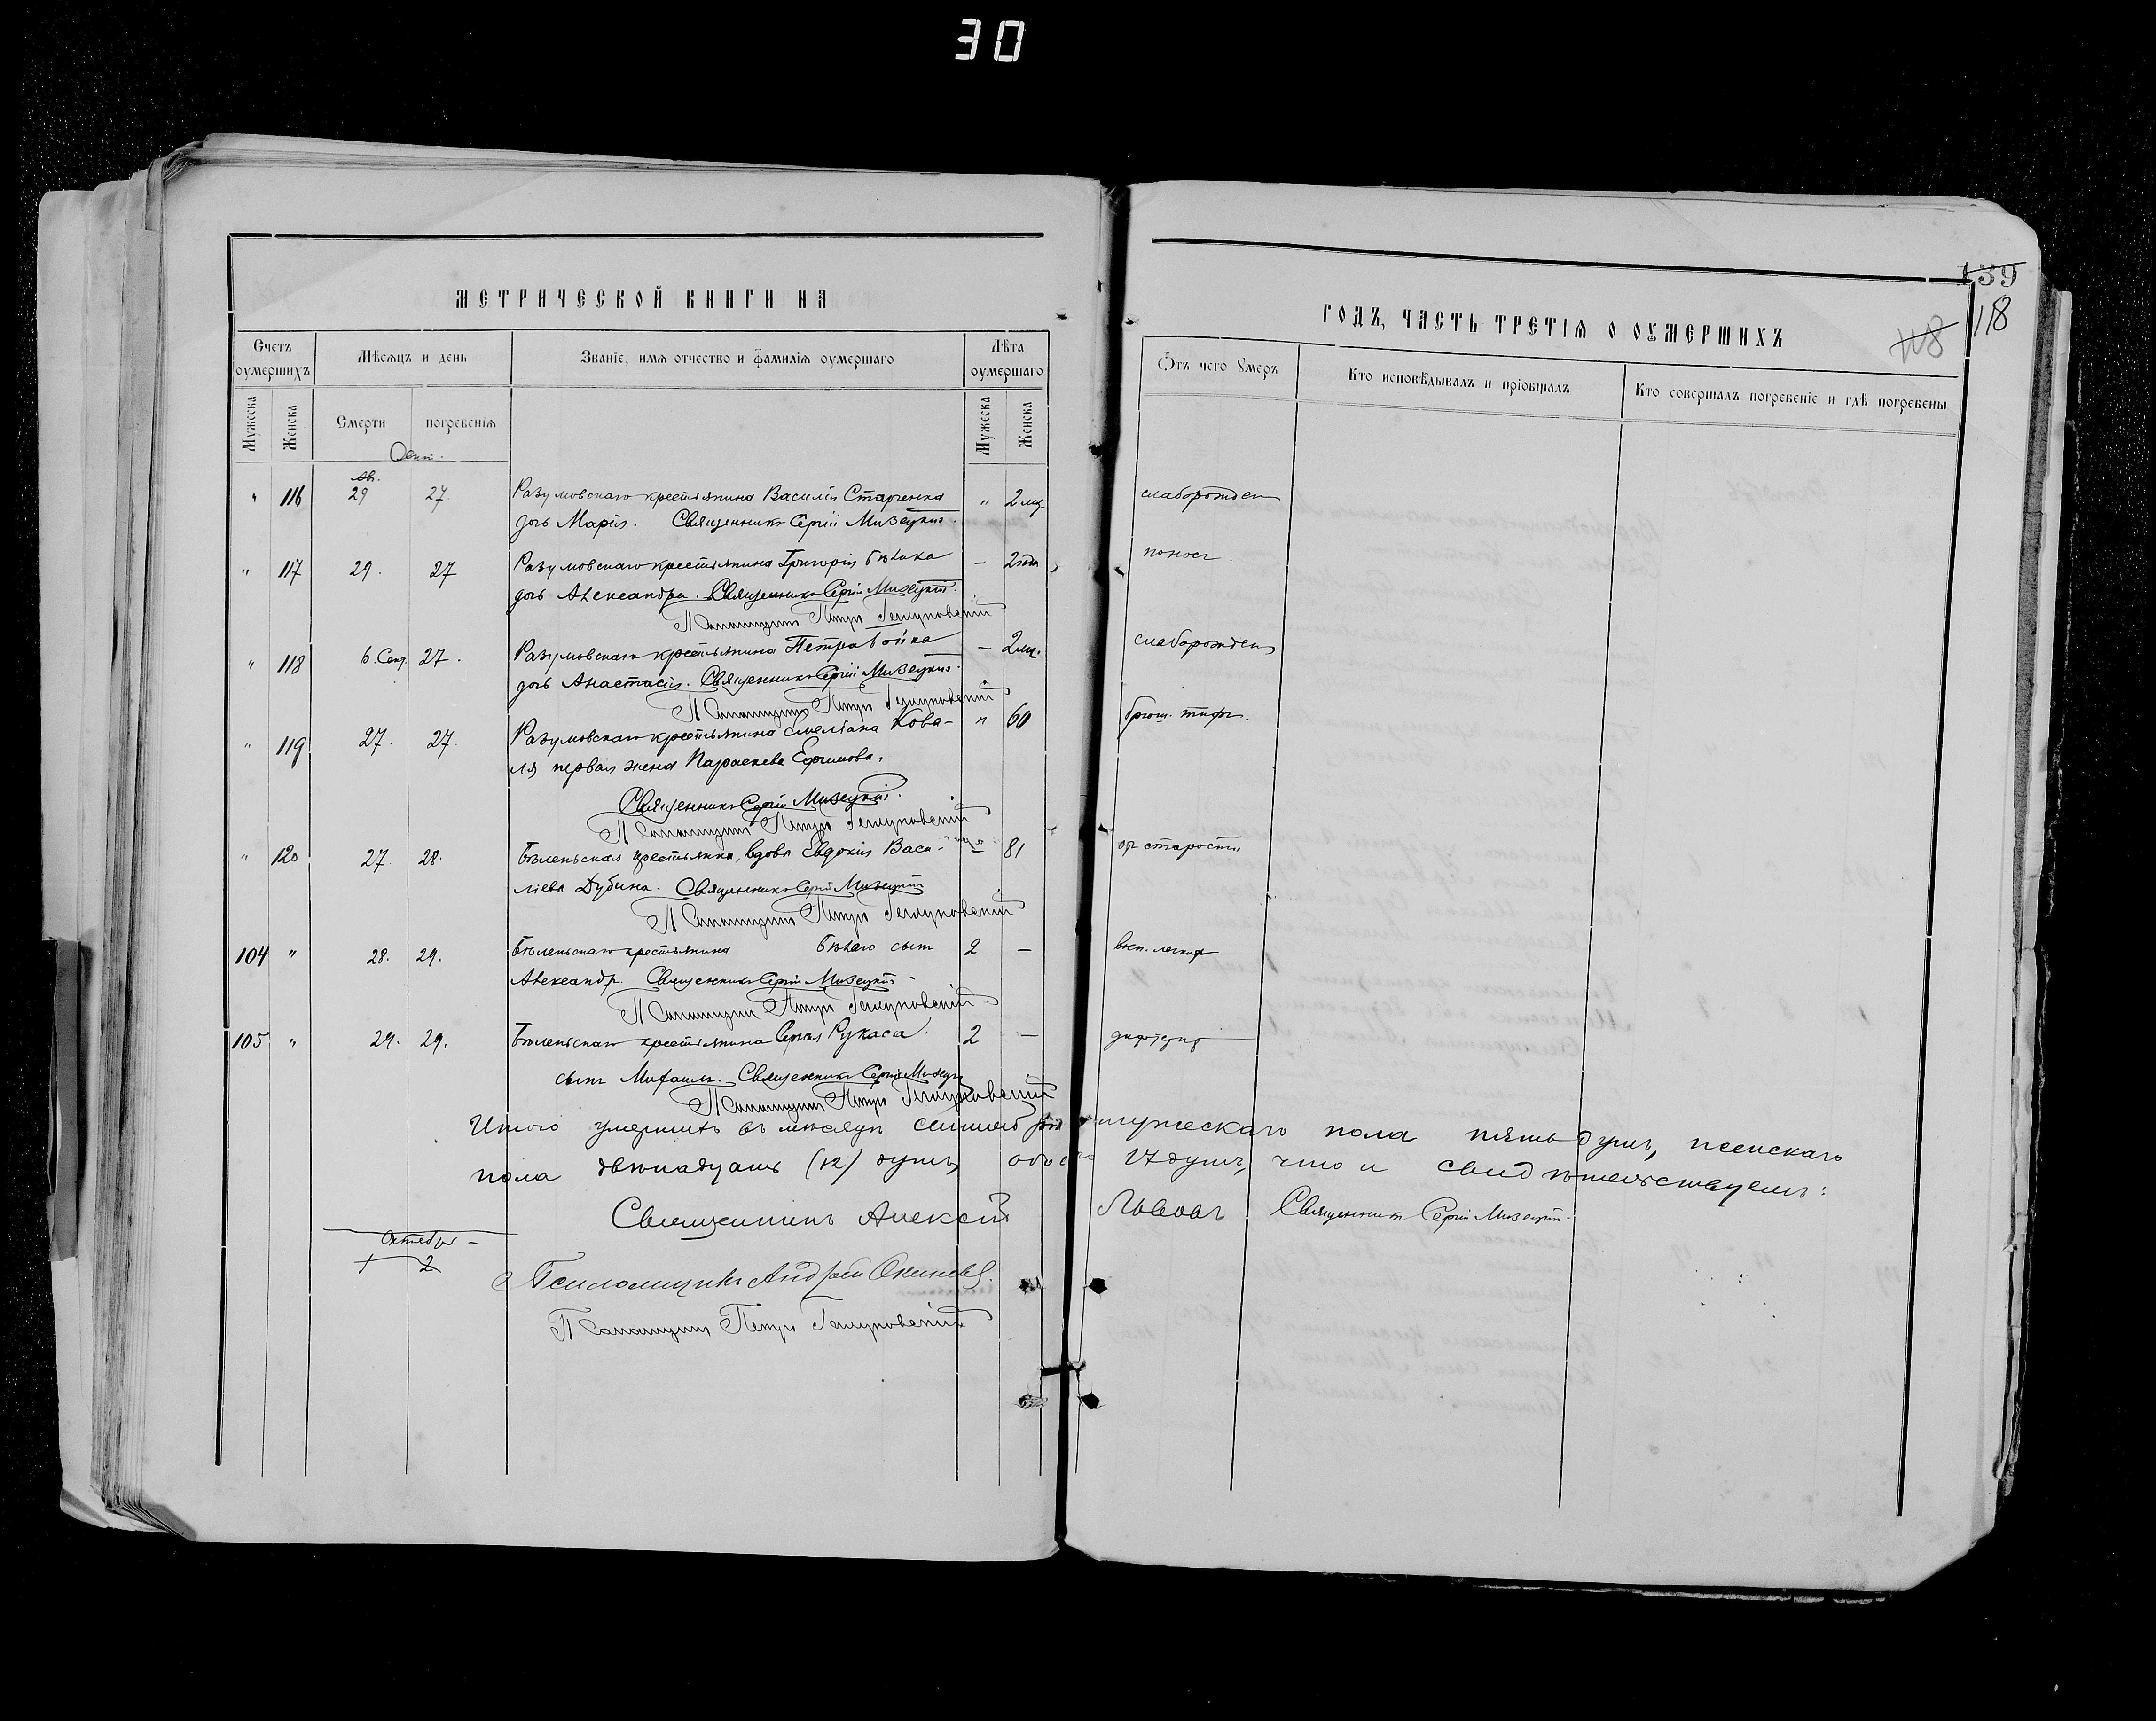 30
МЕТРИЧЕСКОЙ КНИГИ НА
Счетъ оумершихъ
Мѣсяцъ и день
Званіе, имя отчество и фамилія оумершаго
Лѣта оумершаго
Мужеска
Женска
Смерти
погребенія
Мужеска
Женска
" 116 Ав. 29 27. Разумовскаго крестьянина Василія Старченка " 2 мц.
дочь Марія. Священникъ Сергій Мизецкій.
" 117 29. 27 Разумовскаго крестьянина Григорія Бѣлика — 2 года
дочь Александра. Священникъ Сергій Мизецкій.
Псаломщикъ Петръ
" 118 6. Сент. 27. Разумовскаго крестьянина Петра Бойка — 2 мц.
дочь Анастасія. Священникъ Сергій Мизецкій.
Псаломщикъ Петръ
" 119 27. 27. Разумовскаго крестьянина Емеліана Кова- " 60
ля первая жена Параскева Ефимова.
Священникъ Сергій Мизецкій.
Псаломщикъ Петръ
" 120 27. 28. Бѣленьская крестьянка, вдова Евдокія Васи- 81
ліева Дубина. Священникъ Сергій Мизецкій
Псаломщикъ Петръ
104 " 28. 29. Бѣленьскаго крестьянина Бѣлаго сынъ 2 —
Александръ. Священникъ Сергій Мизецкій
Псаломщикъ Петръ
105 " 29. 29. Бѣленьскаго крестьянина Сергія Рукаса 2 —
сынъ Михаилъ. Священникъ Сергій Мизецкій
Псаломщикъ Петръ
Итого умершихъ въ мѣсяцѣ сентябрѣ мужескаго пола пять душъ, женскаго
пола двѣнадцать (12) душъ, обоего 17 душъ, что и свидѣтельствуемъ:
Священникъ Алексій Львовъ Священникъ Сергій Мизецкій.
Октябрь
1 2
Псаломщикъ Андрей
Псаломщикъ Петръ
139
118
118
ГОДЪ, ЧАСТЬ ТРЕТІЯ О ОУМЕРШИХЪ
Отъ чего Умеръ
Кто исповѣдывалъ и пріобщалъ
Кто совершалъ погребеніе и гдѣ погребены
слаборожден
поносъ.
слаборожден
брюш. тифъ.
отъ старости
восп. легкихъ
дифтеритъ